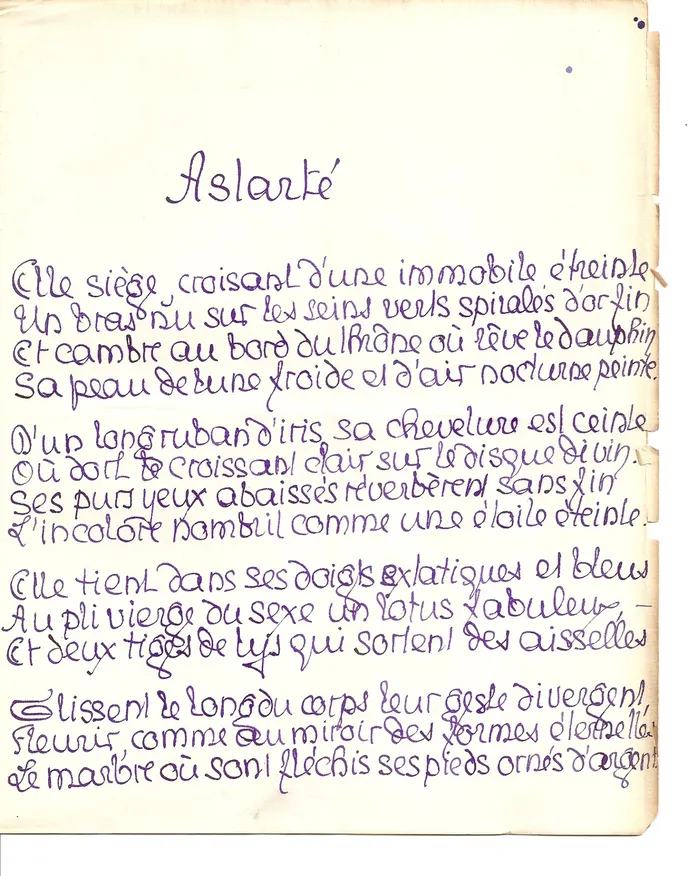 Astarté
Elle siège, croisant d'une immobile étreinte
Un bras nu sur les seins verts spiralés d'or fin
Et cambre au bord du thrône où rêve le dauphin
Sa peau de lune froide et d'air nocturne peinte.
D'un long ruban d'iris, sa chevelure est ceinte
Où dort le croissant clair sur le disque divin.
Ses purs yeux abaissés réverbèrent sans fin
L'incolore nombril comme une étoile éteinte.
Elle tient dans ses doigts extatiques et bleus
Au pli vierge du sexe un lotus fabuleux, —
Et deux tiges de lys qui sortent des aisselles
Glissent le long du corps leur geste divergent
Fleurir, comme au miroir des formes éternelles
Le marbre où sont fléchis ses pieds ornés d'argent